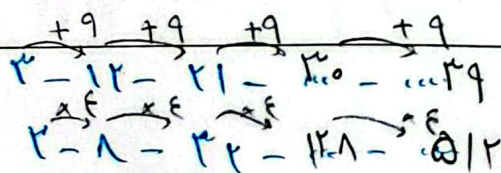 +۹ +۹ +۹ +۹
۳ - ۱۲ - ۲۱ - ...۳۰ - ...۳۹
×٤ ×٤ ×٤ ×٤
۲ - ۸ - ۳۲ - ...۱۲۸ - ...۵۱۲